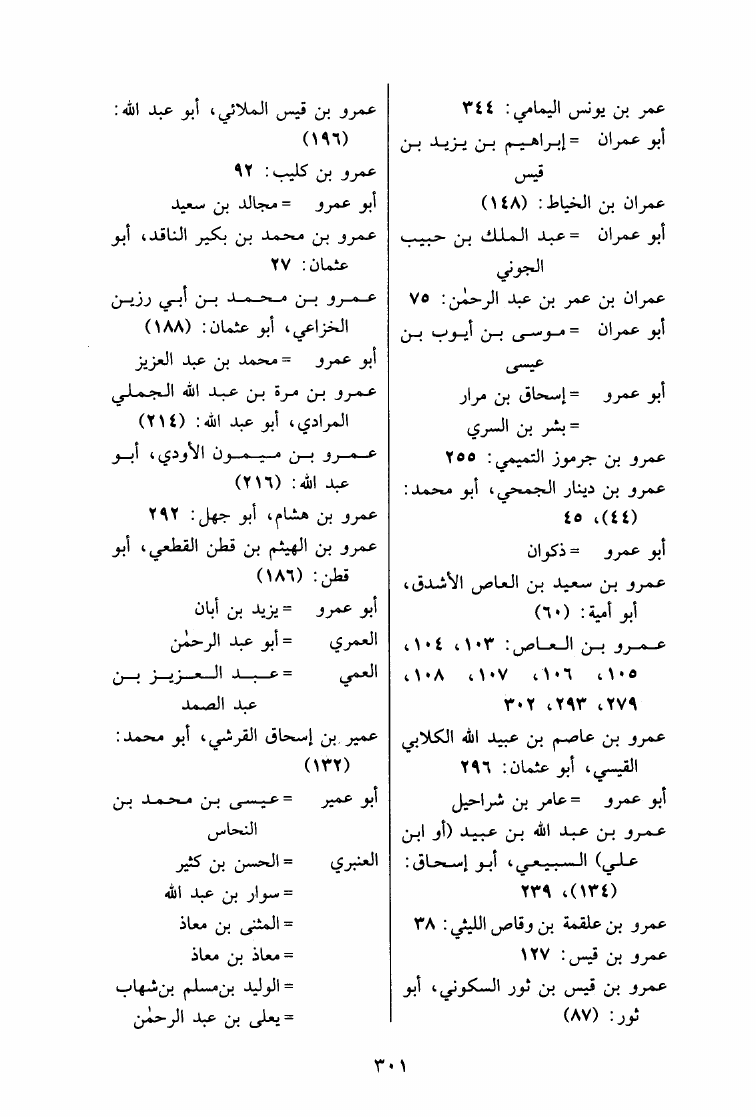 عمر بن يونس اليمامي: ٣٤٤
أبو عمران = إبراهيم بن يزيد بن
قيس
عمران بن الخياط: (١٤٨)
أبو عمران = عبد الملك بن حبيب
الجوني
عمران بن عمر بن عبد الرحمٰن: ٧٥
أبو عمران = موسى بن أيوب بن
عيسى
أبو عمرو = إسحاق بن مرار
= بشر بن السري
عمرو بن جرموز التميمي: ٢٥٥
عمرو بن دينار الجمحي، أبو محمد:
(٤٤)، ٤٥
أبو عمرو = ذكوان
عمرو بن سعيد بن العاص الأشدق،
أبو أمية: (٦٠)
عمرو بن العاص: ١٠٣، ١٠٤،
١٠٥، ١٠٦، ١٠٧، ١٠٨،
٢٧٩، ٢٩٣، ٣٠٢
عمرو بن عاصم بن عبيد الله الكلابي
القيسي، أبو عثمان: ٢٩٦
أبو عمرو = عامر بن شراحيل
عمرو بن عبد الله بن عبيد (أو ابن
علي) السبيعي، أبو إسحاق:
(١٣٤)، ٢٣٩
عمرو بن علقمة بن وقاص الليثي: ٣٨
عمرو بن قيس: ١٢٧
عمرو بن قيس بن ثور السكوني، أبو
ثور: (٨٧)
عمرو بن قيس الملائي، أبو عبد الله:
(١٩٦)
عمرو بن كليب: ٩٢
أبو عمرو = مجالد بن سعيد
عمرو بن محمد بن بكير الناقد، أبو
عثمان: ٢٧
عمرو بن محمد بن أبي رزين
الخزاعي، أبو عثمان: (١٨٨)
أبو عمرو = محمد بن عبد العزيز
عمرو بن مرة بن عبد الله الجملي
المرادي، أبو عبد الله: (٢١٤)
عمرو بن ميمون الأودي، أبو
عبد الله: (٢١٦)
عمرو بن هشام، أبو جهل: ٢٩٢
عمرو بن الهيثم بن قطن القطعي، أبو
قطن: (١٨٦)
أبو عمرو = يزيد بن أبان
العمري = أبو عبد الرحمٰن
العمي = عبد العزيز بن
عبد الصمد
عمير بن إسحاق القرشي، أبو محمد:
(١٣٢)
أبو عمير = عيسى بن محمد بن
النحاس
العنبري = الحسن بن كثير
= سوار بن عبد الله
= المثنى بن معاذ
= معاذ بن معاذ
= الوليد بن مسلم بن شهاب
= يعلى بن عبد الرحمٰن
٣٠١